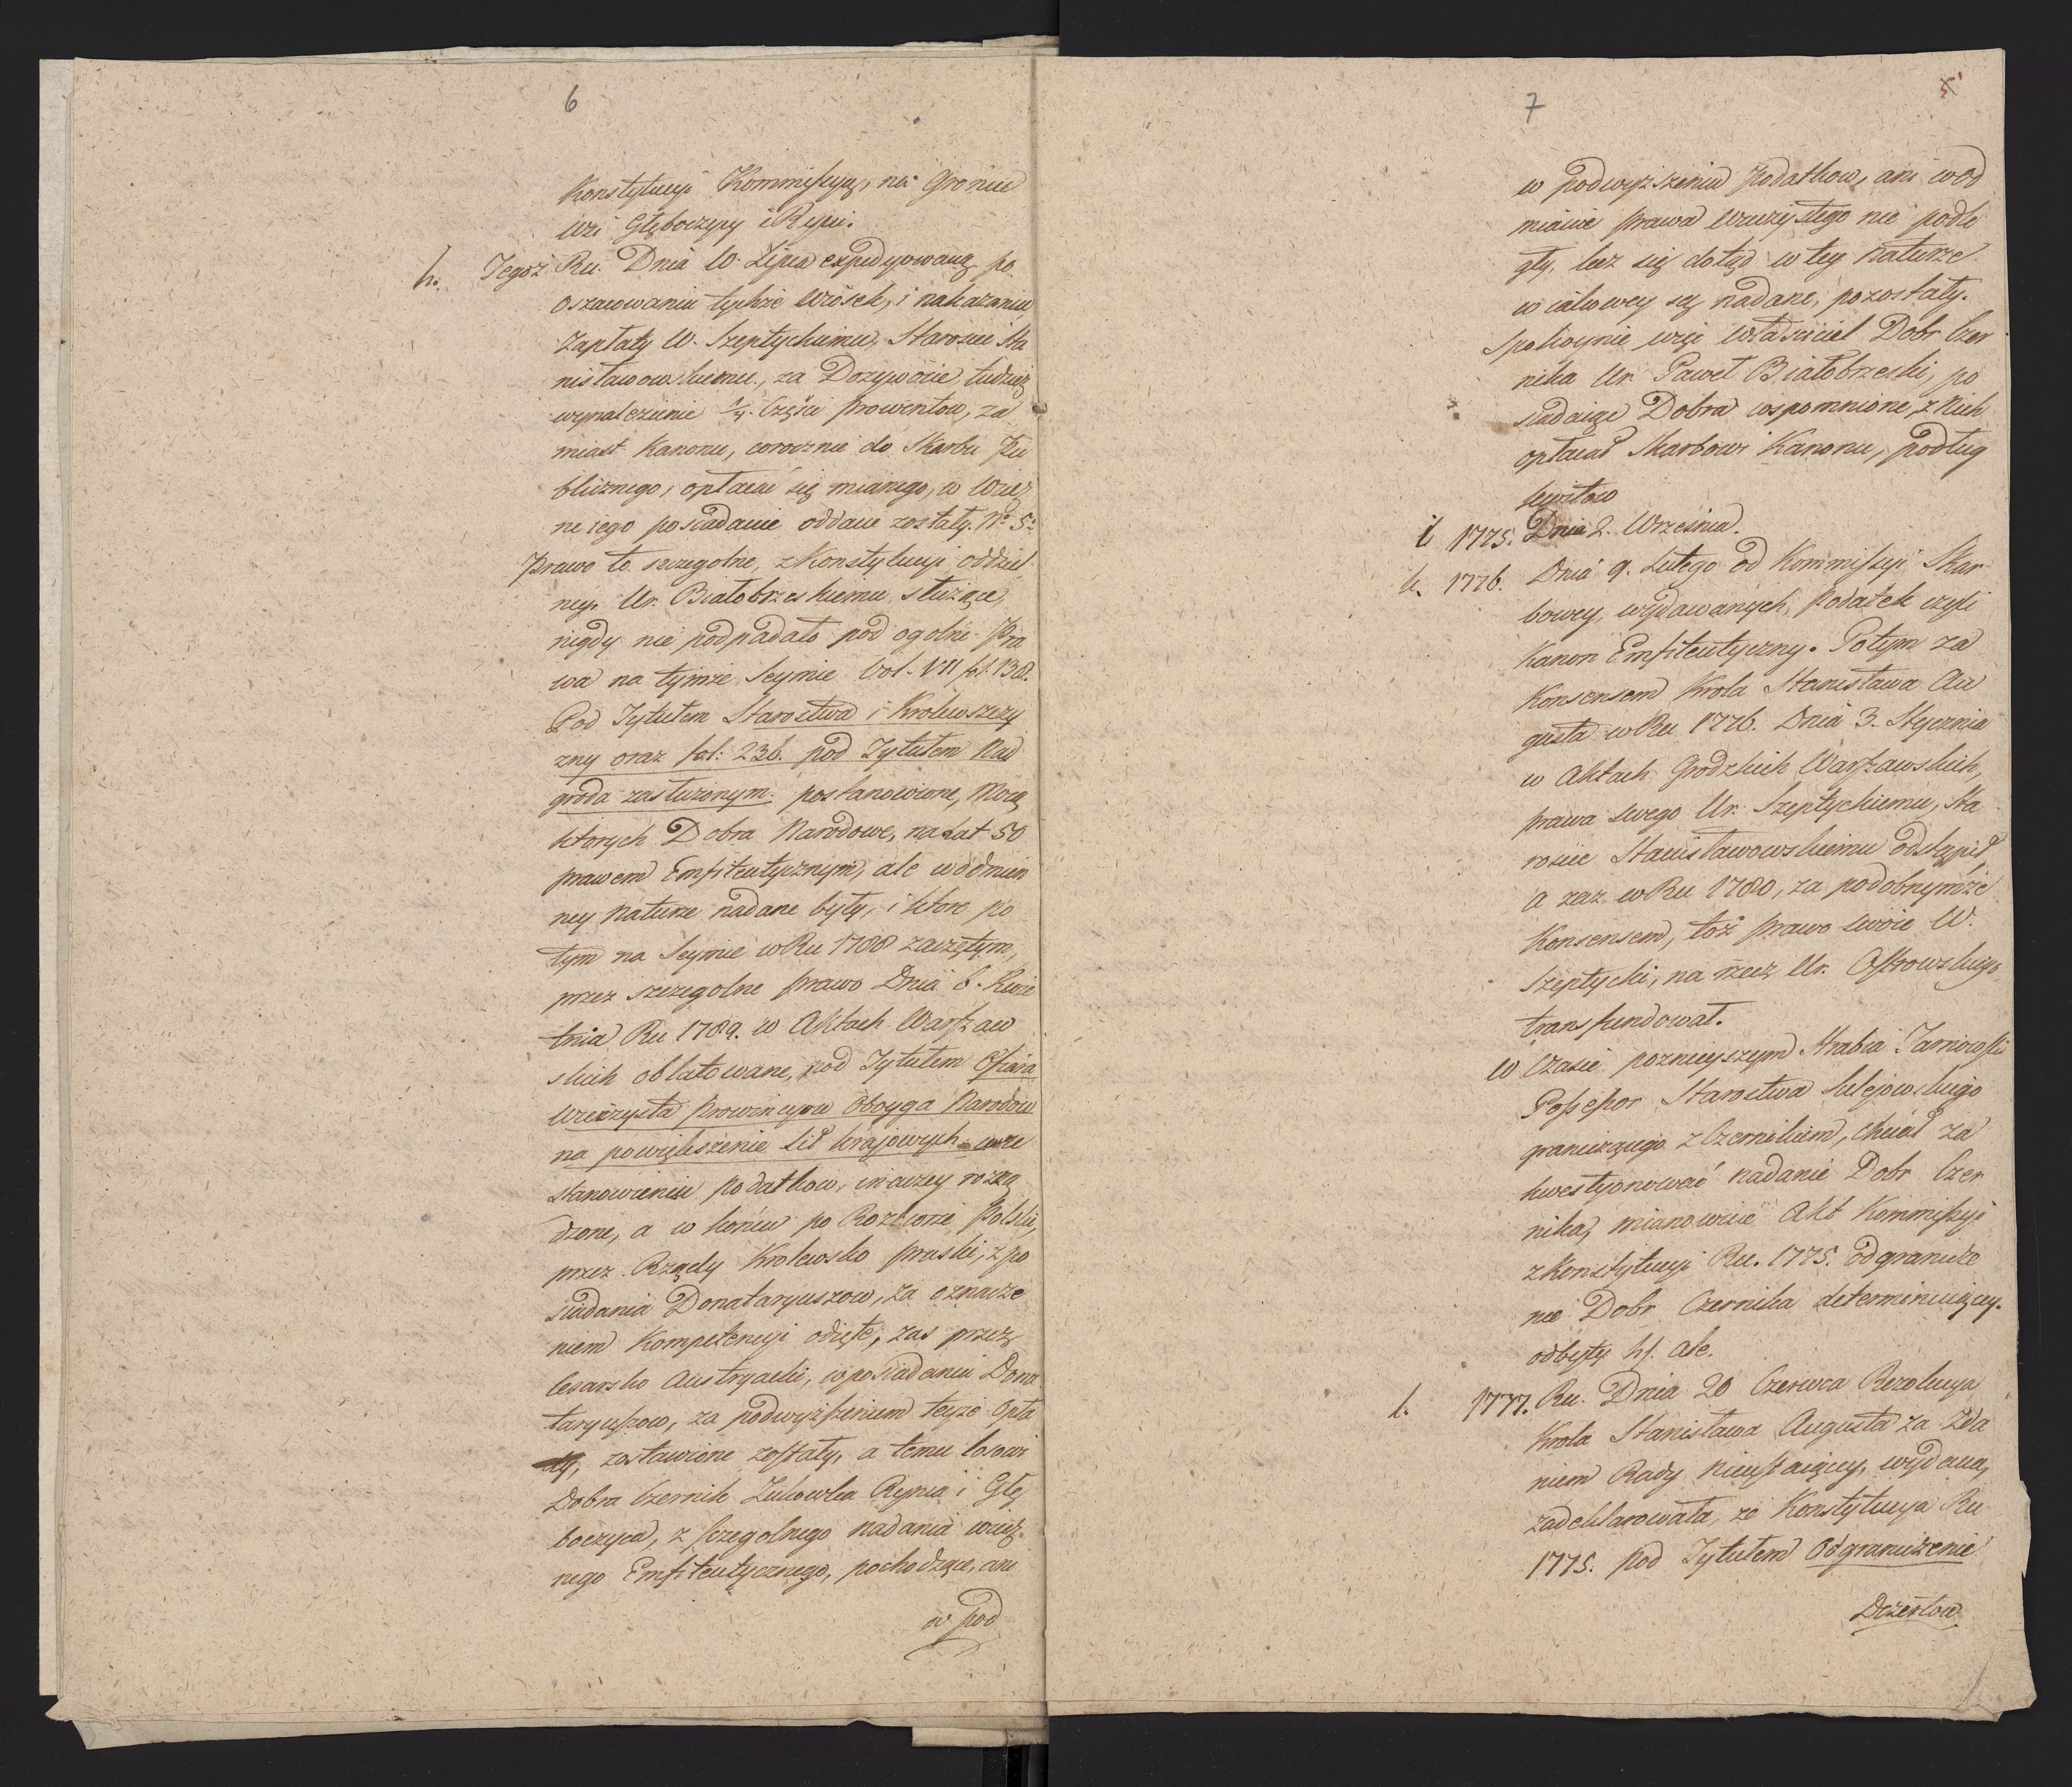 6
Konstytucyi Kommissyą, na Gróncie
wsi Głęboczycy i Rypni.
h. Tegoż Ru. Dnia 10. Lipca expedyowaną po
oszacowaniu tychże wiosek, i nakazaniu
Zapłaty W. Szeptyckiemu, Staroscie Sta
nisławowskiemu, za Dozywocie, tudzież
wynalezienie 1/4. Części prowentow, za
miast Kanonu, corocznie do Skarbu Pu
blicznego, opłacać się mianego, w Wiecz
ne iego posiadanie oddane zostały. No 5o
Prawo to szczegolne, z Konstytucyi oddziel
ney. Ur. Białobrzeskiemu służące,
nigdy nie podpadało pod ogolne Pra
wa na tymże Seymie Vol. VII fol. 138.
Pod Tytułem Starostwa i Krolewszczy
zny oraz fol: 236. pod Tytułem Nad
groda zasłużonym. postanowione, Mocą
ktorych Dobra Narodowe, na Lat 50
prawem Emfiteutycznym, ale w odmien
ney naturze nadane były, i ktore po
tym na Seymie w Ru 1788 zaczętym,
przez szczegolne prawo Dnia 6. Kwie
tnia Ru 1789. w Aktach Warszaw
skich oblatowane, pod Tytułem Ofiara
wieczysta Prowincyow Oboyga Narodow
na powiększenie Sił krajowych w
stanowieniu podatkow, inaczey rozrzą
dzone, a w końcu po Rozbiorze Polski,
przez Rządy Krolewsko pruski, z po
siadania Donataryuszow, za oznacze
niem Kompetencyi odięte, zas przez
Cesarsko Austryacki, w posiadaniu Dona
taryuszow, za podwyższeniem teyże Opła
ty, zostawione zostały, a temu losowi
Dobra Czernik Zukowka Rypnia i Głę
boczyca, z szczegolnego nadania wiecz
nego Emfiteutycznego, pochodzące, ani
w pod
7
5
w podwyższeniu Podatkow, ani w od
mianie prawa wieczystego nie podle
gły, lecz się dotąd w tey naturze
w iakowey są nadane, pozostały.
Spokoynie więc właściciel Dobr Czer
nika Ur. Paweł Białobrzeski, po
siadaiąc Dobra wspomnione, z Nich
opłacał Skarbowi Kanonu, podług
kwitow
i 1775. Dnia 2. Września.
k. 1776. Dnia 9. Lutego od Kommissyi Skar
bowey, wydawanych, Podatek czyli
Kanon Emfiteutyczny. Potym za
Konsensem Krola Stanisława Au
gusta w Ru 1776. Dnia 3. Stycznia
w Aktach Grodzkich Warszawskich,
prawa swego Ur. Szeptyckiemu, Sta
roscie Stanisławowskiemu odstąpił,
a zaz w Ru 1780, za podobnymże
Konsensem, toż prawo swoie W.
Szeptycki, na rzecz Ur. Ostrowskiego
transfundował.
W Czasie pozniejszym Hrabia Tarnowski
Possessor Starostwa Sulejowskiego
graniczącego z Czernikiem, chciał za
kwestyonować nadanie Dobr Czer
nika, mianowicie Akt Kommissyi
z Konstytucyi Ru. 1775. odgranicze
nie Dobr Czernika determinuiącey.
odbyty h. ale.
l. 1777. Ru. Dnia 20 Czerwca Rezolucya
Krola Stanisława Augusta za Zda
niem Rady Nieustaiącey, wydana,
zadeklarowała, ze Konstytucya Ru
1775. pod Tytułem Odgraniczenie
Dziesłow